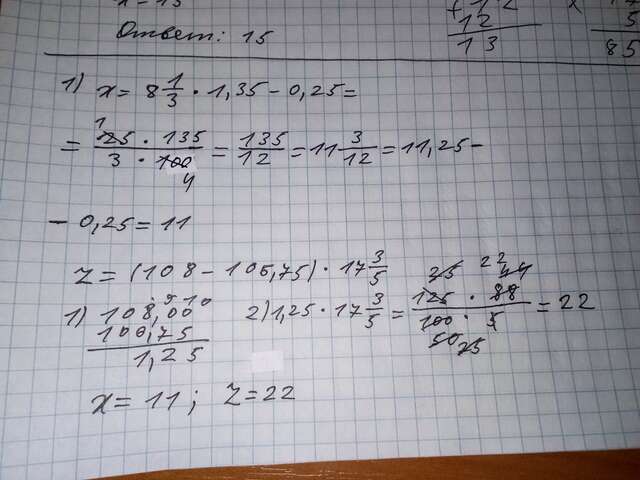 Ответ: 15
12
13
5
85
1) x = 8 1/3 · 1,35 - 0,25 =
= 25 · 135 / 3 · 100 = 135/12 = 11 3/12 = 11,25 -
1
4
- 0,25 = 11
z = (108 - 106,75) · 17 3/5
1) 108,00
9 10
100,75
1,25
2) 1,25 · 17 3/5 = 125 · 88 / 100 · 5 = 22
25 22 44
50 25
x = 11; z = 22